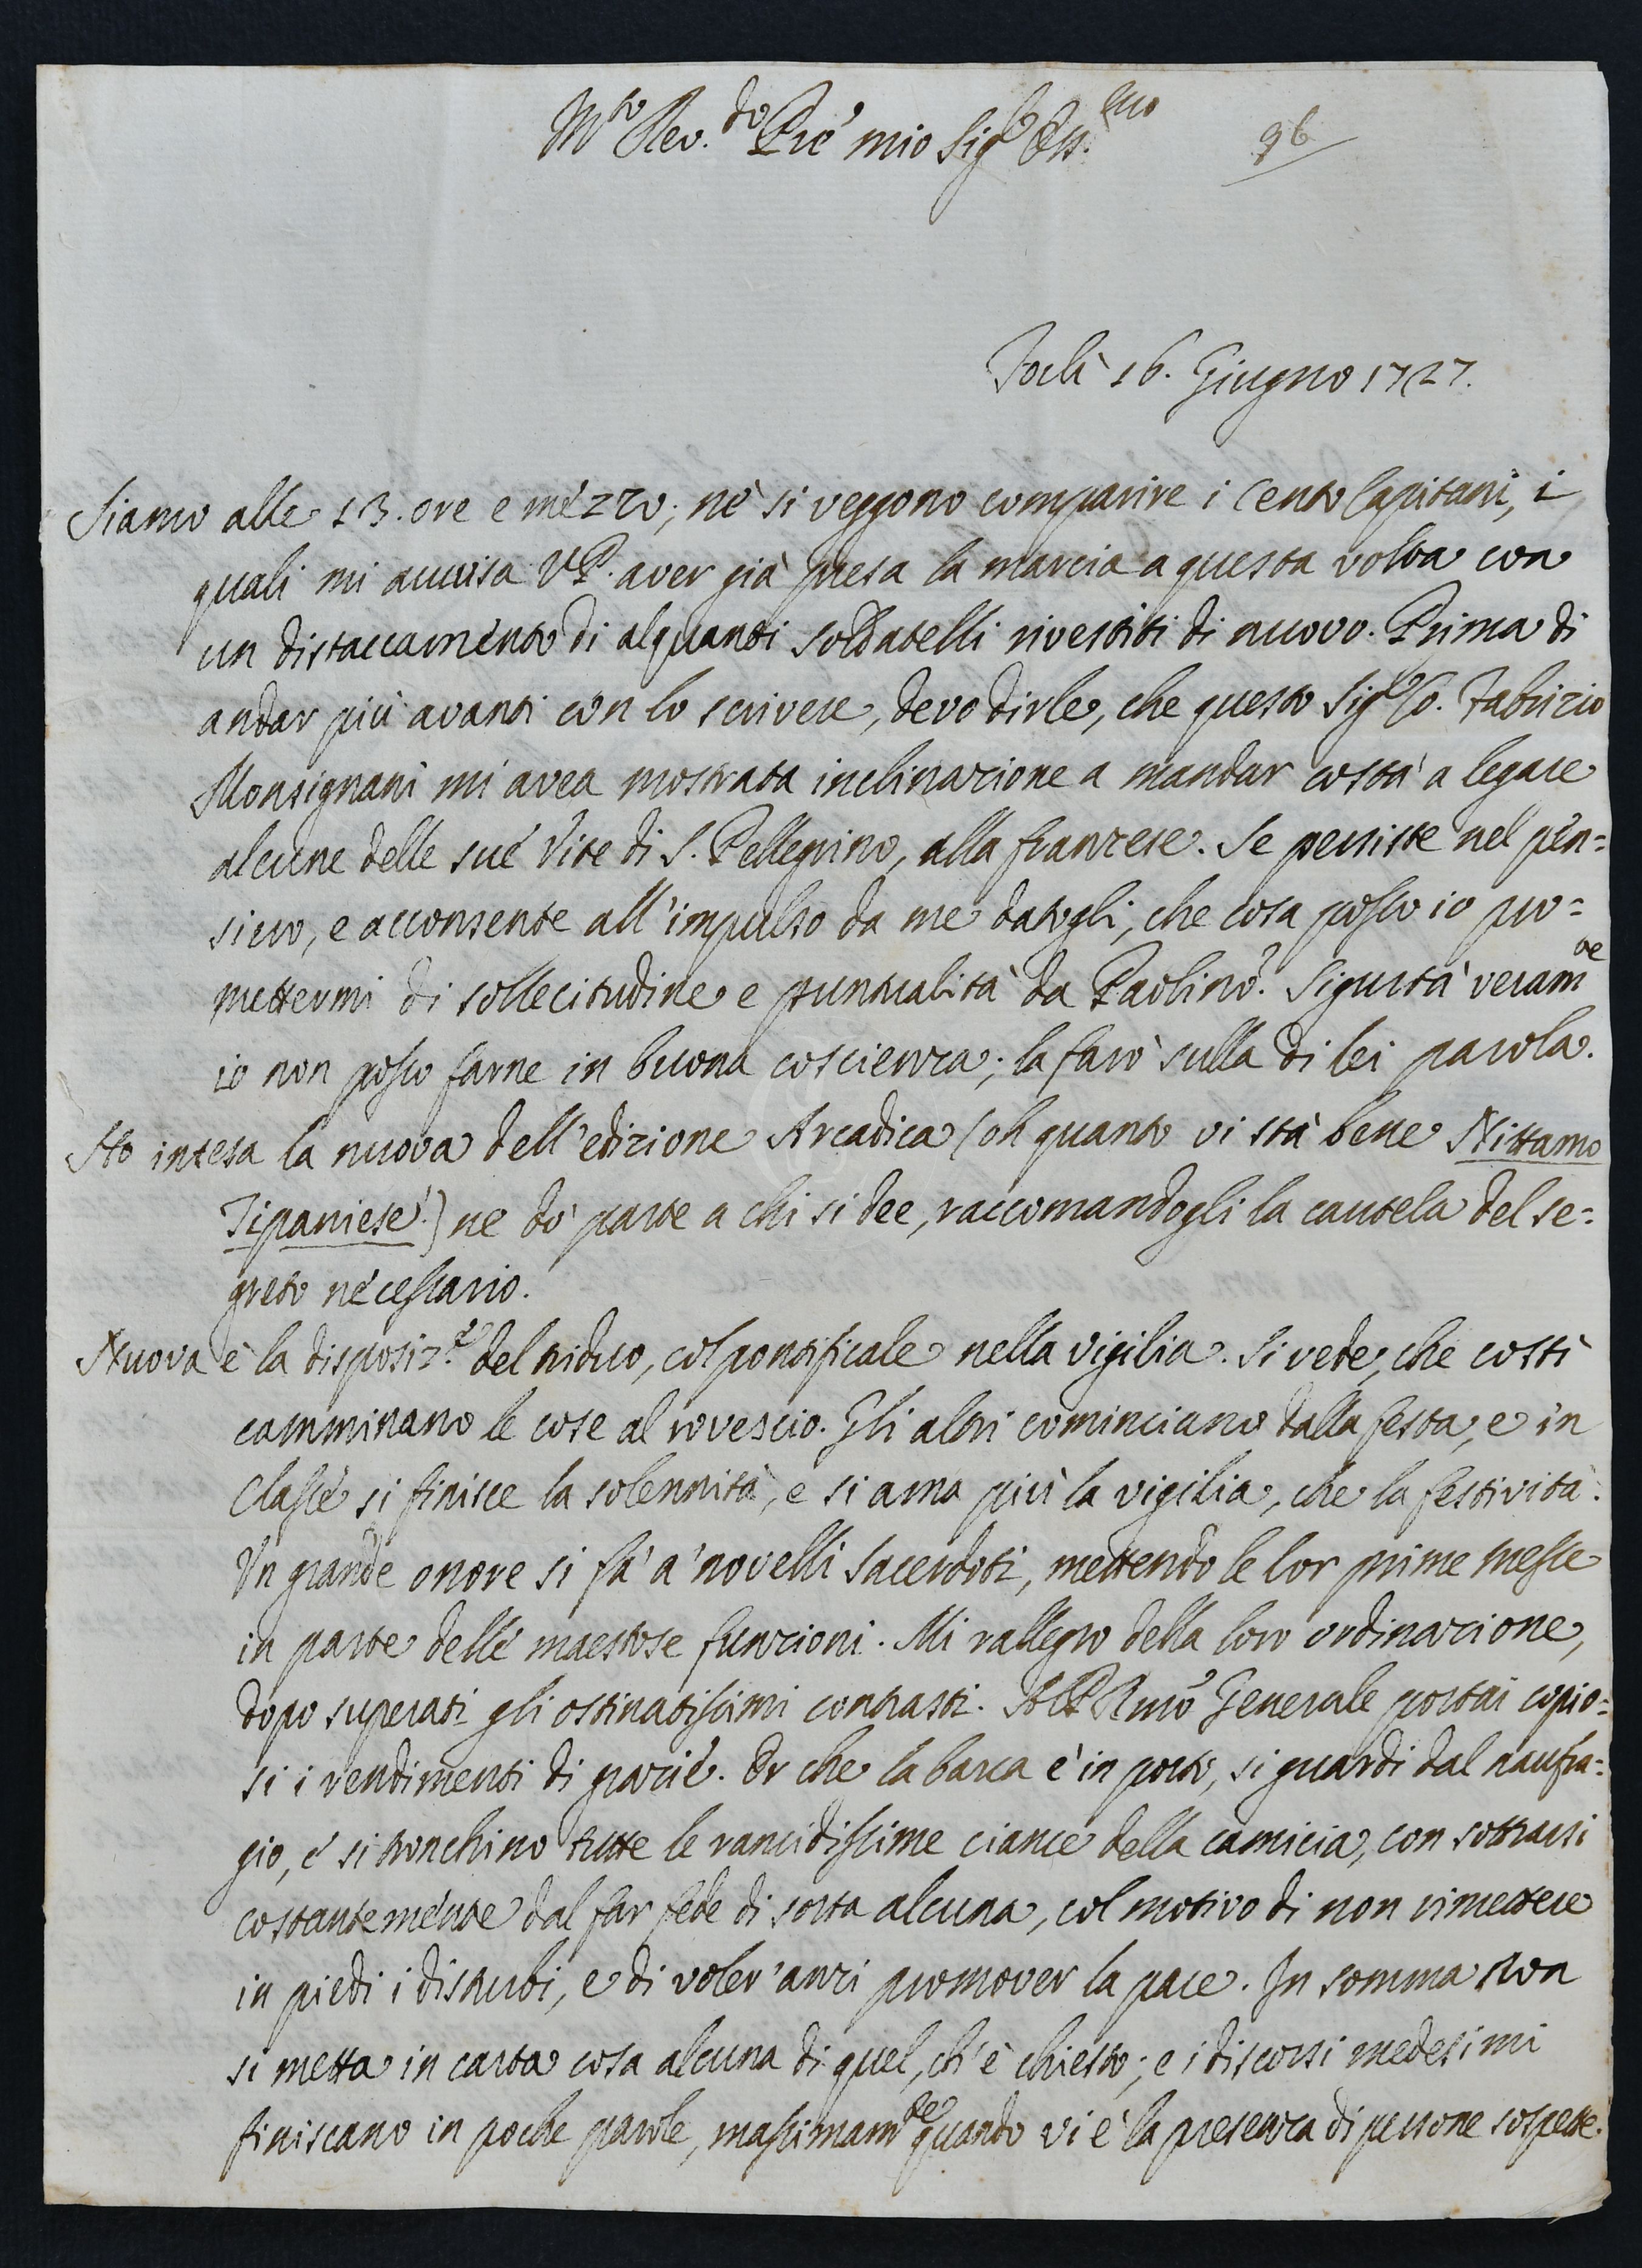 M.to Rev.do Prē mio Sig.r Oss.mo
96
Forlì 16. Giugno 1727.
Siamo alle 13. ore e mezzo; nè si veggono comparire i Cento Capitani, i
quali mi avvisa V.P. aver già presa la marcia a questa volta con
un distaccamento di alquanti soldatelli rivestiti di nuovo. Prima di
andar più avanti con lo scrivere, devo dirle, che questo Sig.r Co. Fabrizio
Monsignani mi avea mostrata inclinazione a mandar costà a legare
alcune delle sue Vite di S. Pellegrino, alla franzese. Se persiste nel pen=
siero, e acconsente all'impulso da me datogli, che cosa posso io pro=
mettermi di sollecitudine e puntualità da Paolino? Sigurtà veram.te
io non posso farne in buona coscienza; la farò sulla di lei parola.
Ho intesa la nuova dell'edizione Arcadica (oh quanto vi stà bene Nittamo
Tipaniese!) ne dò parte a chi si dee, raccomandogli la cautela del se=
greto necessario.
Nuova è la disposiz.e del triduo, col pontificale nella vigilia. Si vede, che costì
camminano le cose al rovescio. Gli altri cominciano dalla festa, e in
Classe si finisce la solennità, e si ama più la vigilia, che la festività.
Un grande onore si fà a' novelli Sacerdoti, mettendo le lor prime messe
in parte delle maestose funzioni. Mi rallegro della loro ordinazione,
dopo superati gli ostinatissimi contrasti. Al P. Rmo Generale portai copio=
si i rendimenti di grazie. Or che la barca è in porto, si guardi dal naufra=
gio, e si tronchino tutte le rancidissime ciance della camicia, con sottrarsi
costantemente dal far fede di sorta alcuna, col motivo di non rimettere
in piedi i disturbi, e di voler'anzi promover la pace. In somma non
si metta in carta cosa alcuna di quel, ch'è chiesto; e i discorsi medesimi
finiscano in poche parole, massimam.te quando vi è la presenza di persone sospette.